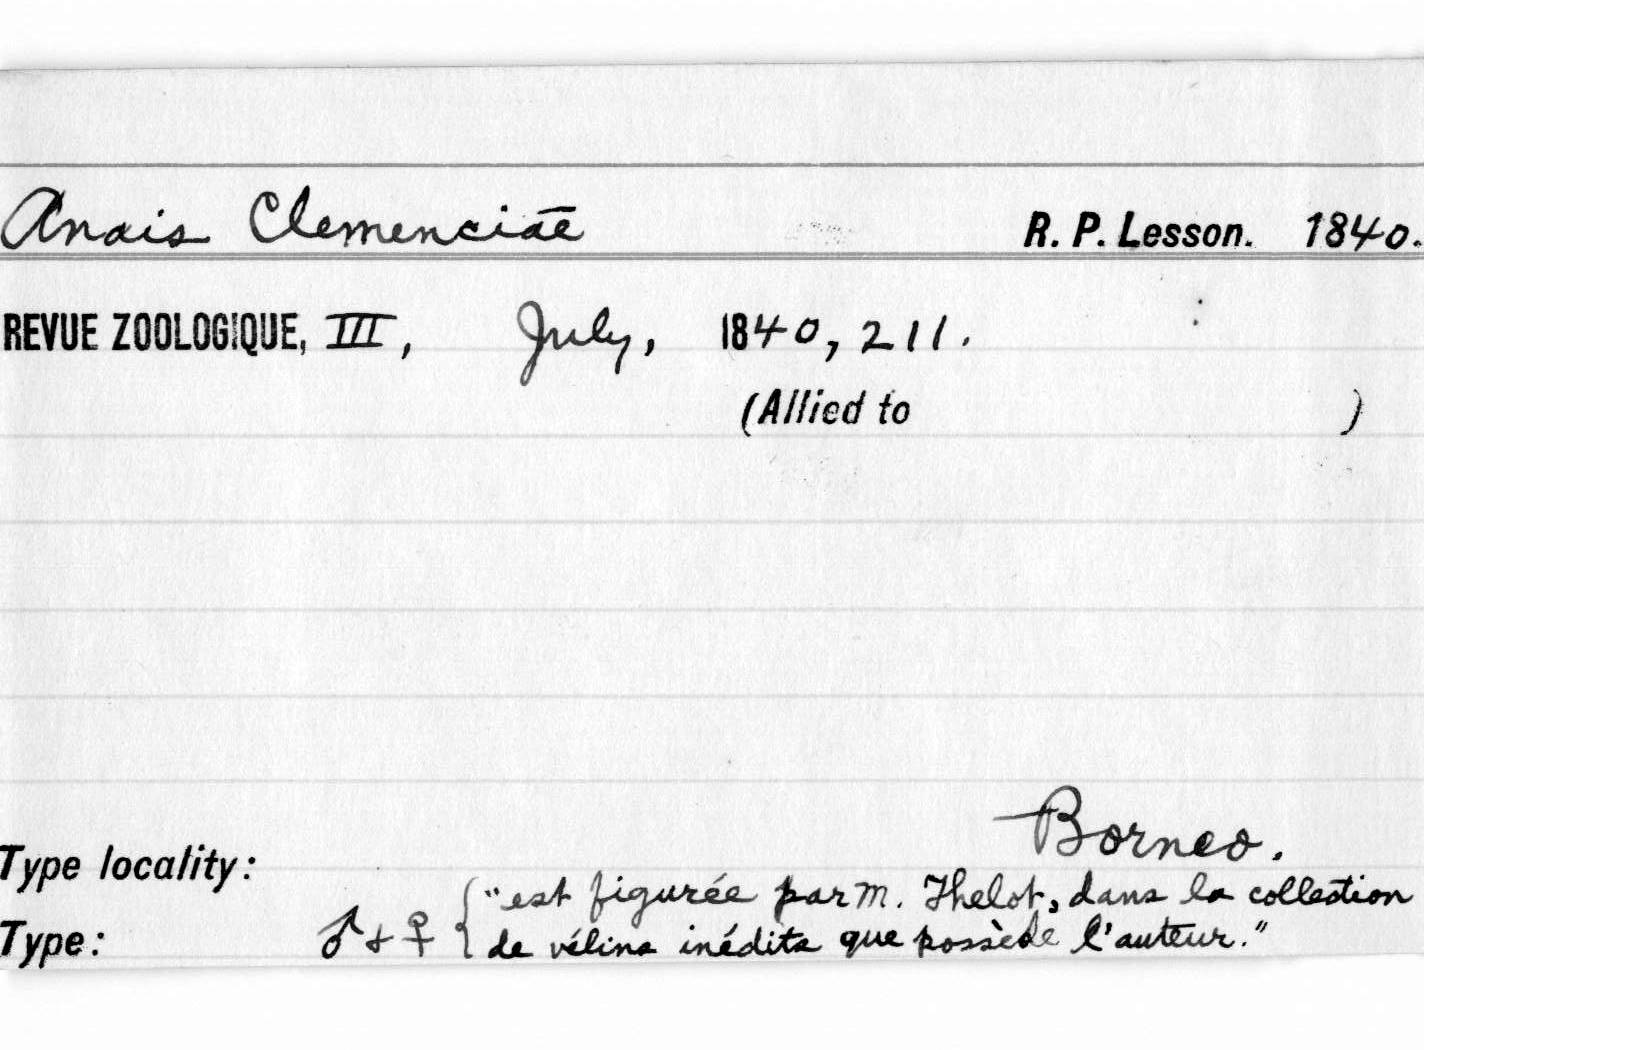 Anais Clemenciae R. P. Lesson. 1840.
REVUE ZOOLOGIQUE, III, July, 1840, 211.
(Allied to )
Borneo.
Type locality:
"est figurée par M. Thelot, dans la collection
Type: ♂ + ♀ de vélins inédits que possède l'auteur."